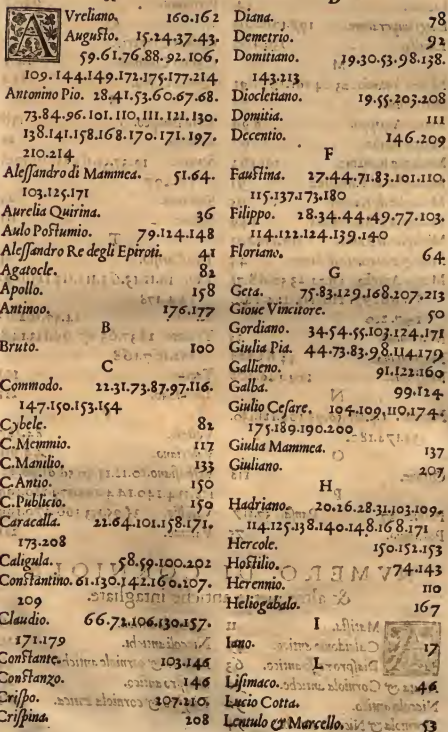 AVreliano. 160.162
Augusto. 15.24.37.43.
59.61.76.88.92.106.
109.144.149.172.175.177.214
Antonino Pio. 28.41.53.60.67.68.
73.84.96.101.110.111.121.130.
138.141.158.168.170.171.197.
210.214
Alessandro di Mammea. 51.64.
103.125.171
Aurelia Quirina. 36
Aulo Postumio. 79.124.148
Alessandro Re degli Epiroti. 41
Agatocle. 82
Apollo. 158
Antinoo. 176.177
B
Bruto. 100
C
Commodo. 22.31.73.87.97.116.
147.150.153.154
Cybele. 82
C.Memmio. 117
C.Manilio. 133
C.Antio. 150
C.Publicio. 159
Caracalla. 22.64.101.158.171.
173.208
Caligula. 58.59.100.202
Constantino. 61.130.142.160.207.
209
Claudio. 66.72.106.130.157.
171.179
Constante. 103.146
Constanzo. 146
Crispo. 207.210.
Crispina. 208
Diana. 78
Demetrio. 92
Domitiano. 19.30.53.98.138.
143.213
Diocletiano. 19.55.203.208
Domitia. 111
Decentio. 146.209
F
Faustina. 27.44.71.83.101.110.
115.137.173.180
Filippo. 28.34.44.49.77.103.
114.122.124.139.140
Floriano. 64
G
Geta. 75.83.129.168.207.213
Gioue Vincitore. 50
Gordiano. 34.54.55.103.124.171
Giulia Pia. 44.73.83.98.114.179
Gallieno. 91.122.160
Galba. 99.124
Giulio Cesare. 104.109.110.174.
175.189.190.200
Giulia Mammea. 137
Giuliano. 207
H
Hadriano. 20.26.28.31.103.109.
114.125.138.140.148.168.171
Hercole. 150.152.153
Hostilio. 74.143
Herennio. 110
Heliogabalo. 167
I
Iano. 17
L
Lisimaco. 46
Lucio Cotta.
Lentulo & Marcello. 53